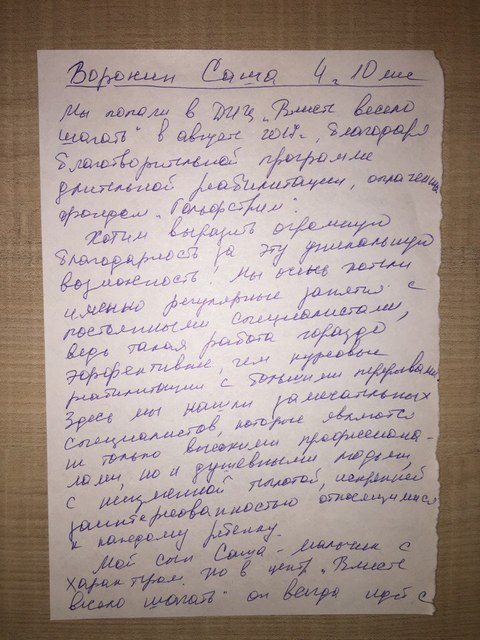 Воронин Саша 4 г. 10 мес
Мы попали в ДИЦ „Вместе весело
шагать" в августе 2017 г., благодаря
благотворительной программе
длительной реабилитации, оплаченной
фондом „Гольфстрим".
Хотим выразить огромную
благодарность за эту уникальную
возможность! Мы очень хотели
именно регулярные занятия с
постоянными специалистами,
ведь такая работа гораздо
эффективнее, чем курсовые
реабилитации с большими перерывами.
Здесь мы нашли замечательных
специалистов, которые являются
не только высокими профессиона-
лами, но и душевными людьми,
с неизменной теплотой, искренней
заинтересованностью относящимися
к каждому ребенку.
Мой сын Саша - мальчик с
характером. Но в центр „Вместе
весело шагать" он всегда идет с